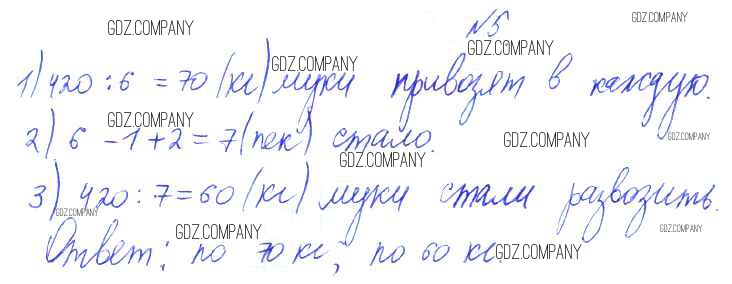 GDZ.COMPANY №5 GDZ.COMPANY
GDZ.COMPANY GDZ.COMPANY
1) 420 : 6 = 70 (кг) муки привозят в каждую.
GDZ.COMPANY
2) 6 - 1 + 2 = 7 (пек) стало. GDZ.COMPANY GDZ.COMPANY
GDZ.COMPANY
3) 420 : 7 = 60 (кг) муки стали развозить.
GDZ.COMPANY GDZ.COMPANY GDZ.COMPANY
Ответ: по 70 кг; по 60 кг. GDZ.COMPANY